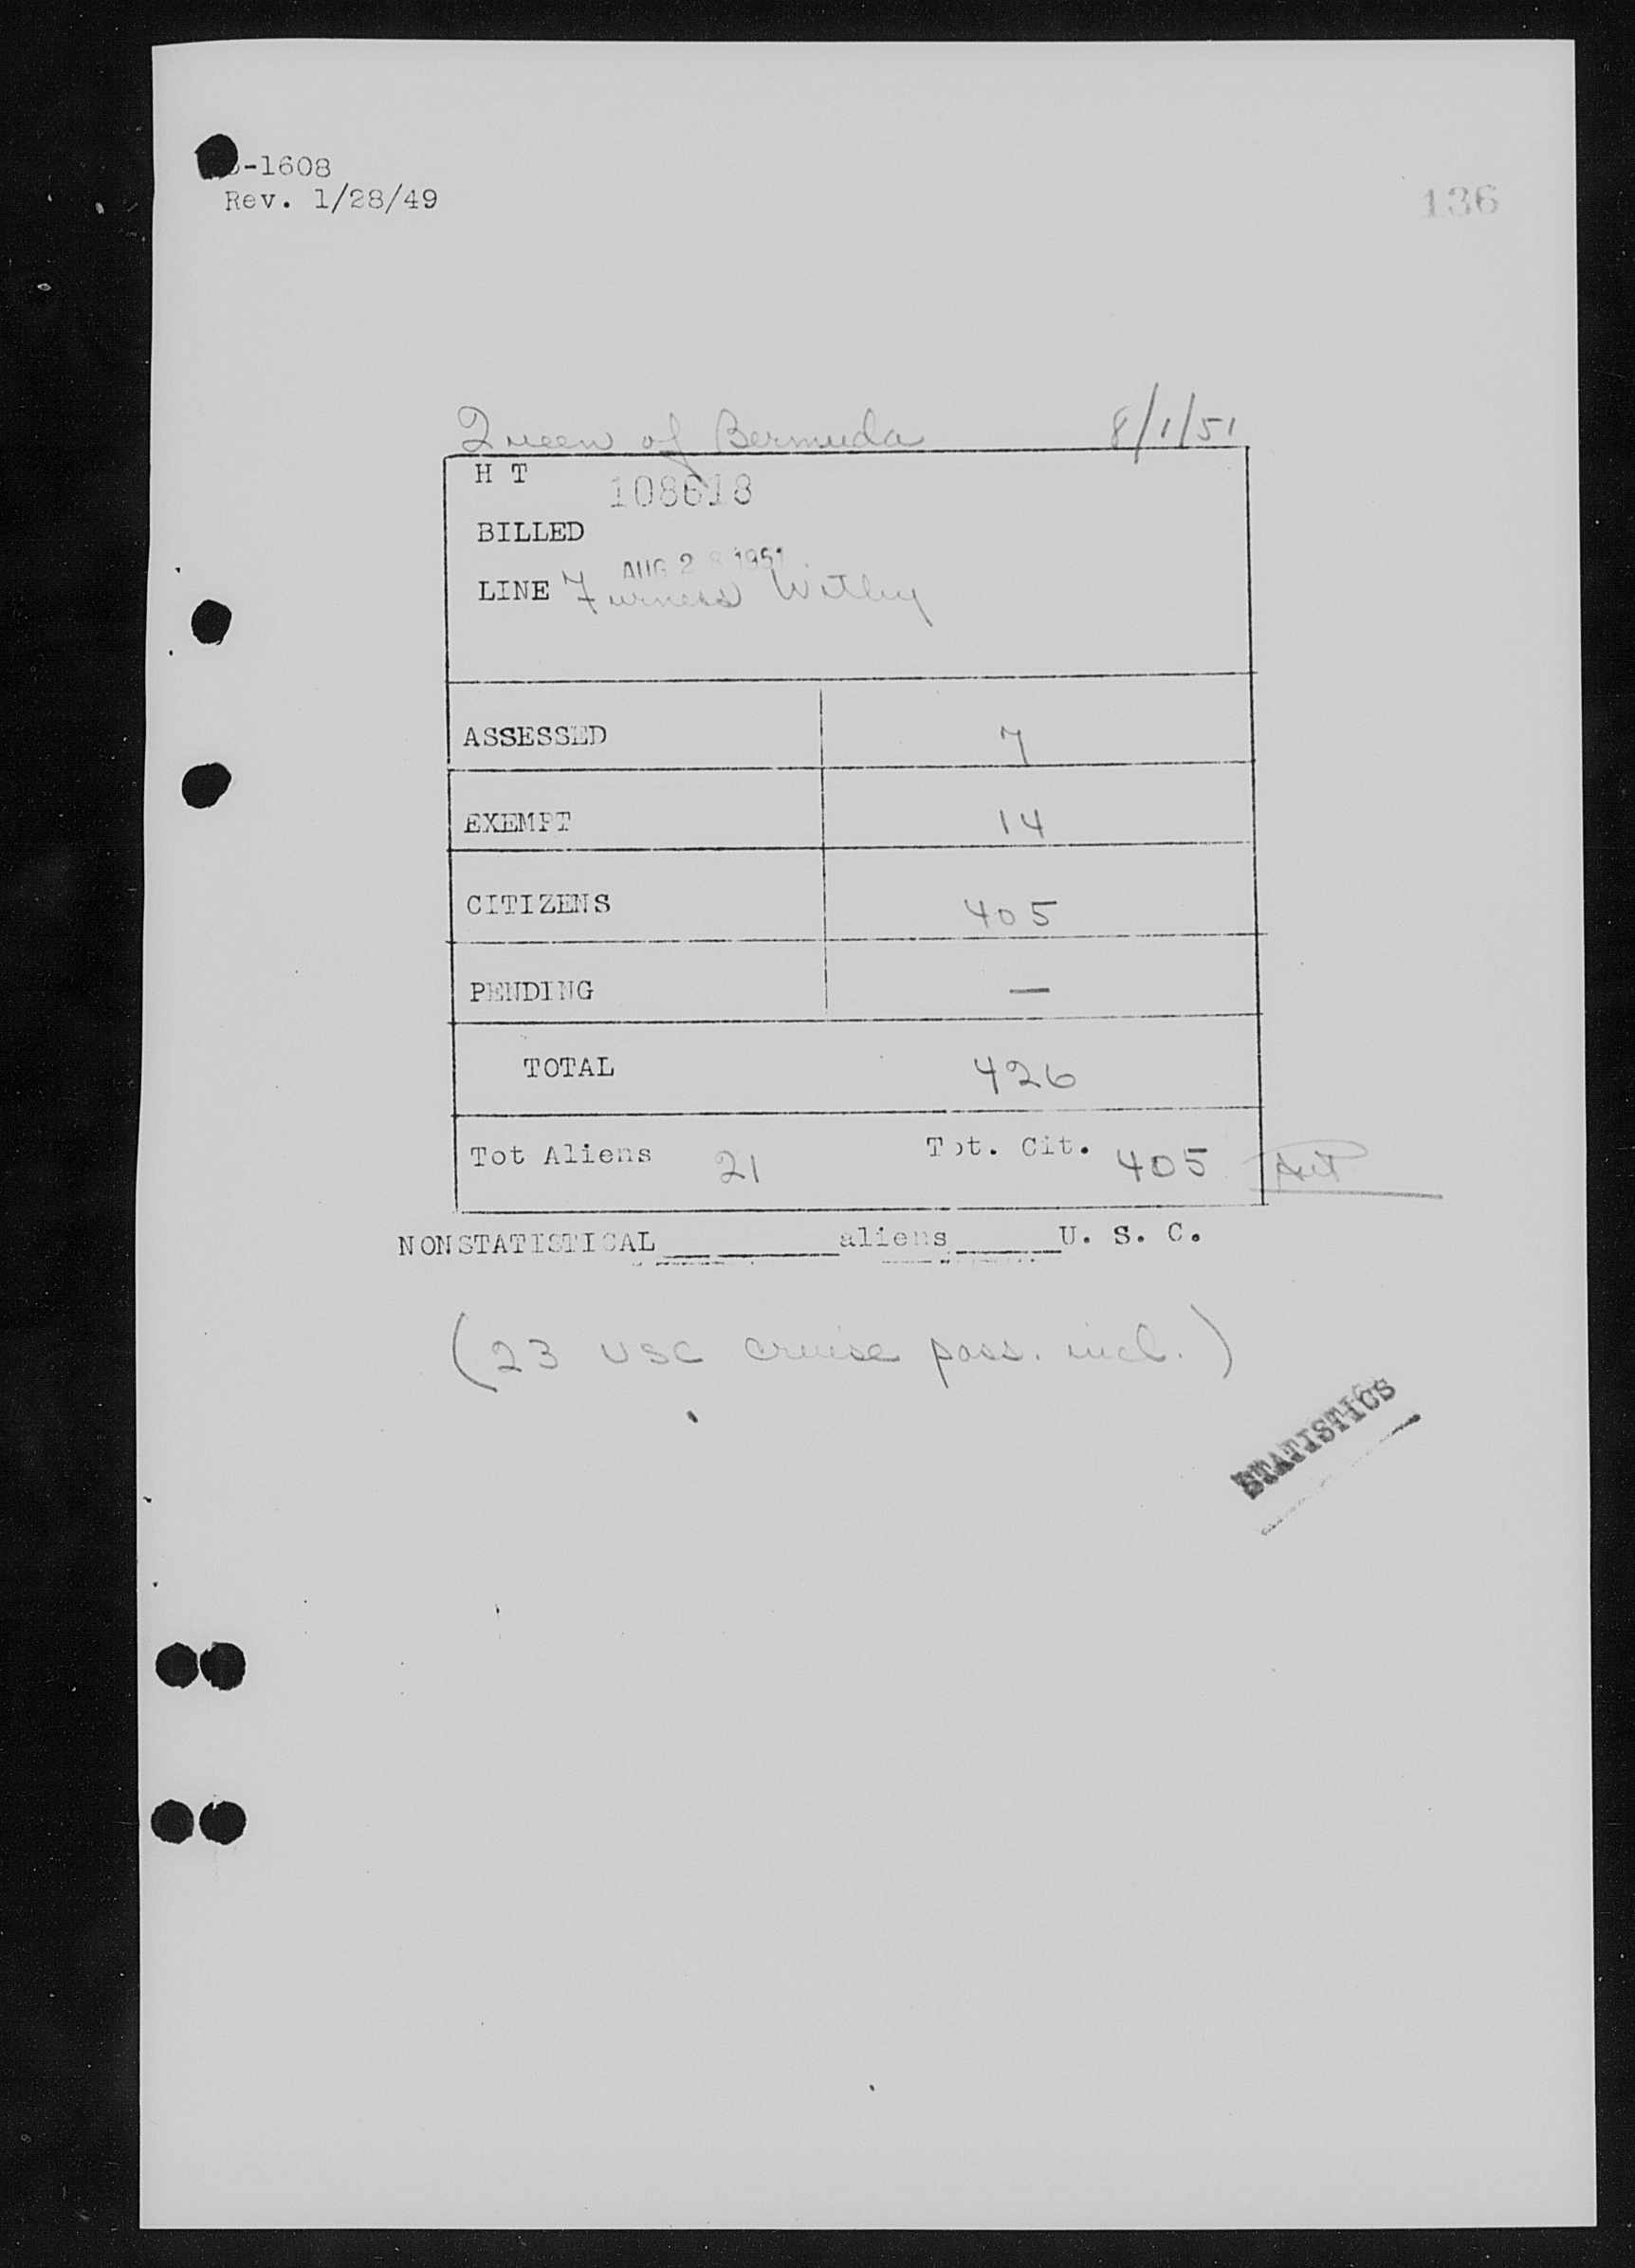 -1608
Rev. 1/28/49
136
Queen of Bermuda 8/1/51
H T 108618
BILLED
AUG 28 1951
LINE Furness Withy
ASSESSED 7
EXEMPT 14
CITIZENS 405
PENDING —
TOTAL 426
Tot Aliens 21 Tot. Cit. 405
NONSTATISTICAL ______ aliens ____ U. S. C.
(23 USC cruise pass. incl.)
STATISTICS